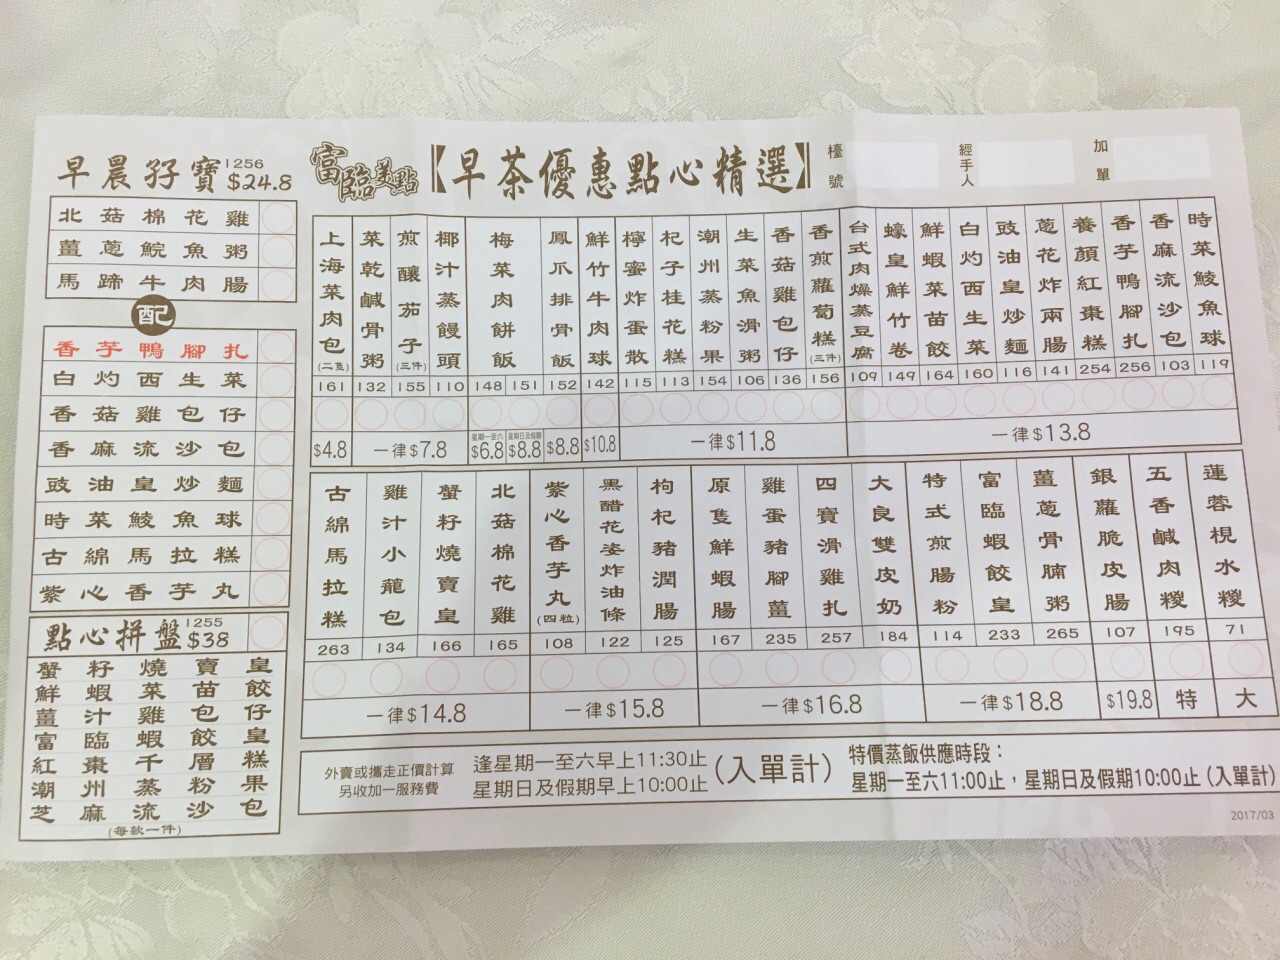 早晨孖寶 1256 $24.8
北菇棉花雞
薑蔥鯇魚粥
馬蹄牛肉腸
配
香芋鴨腳扎
白灼西生菜
香菇雞包仔
香麻流沙包
豉油皇炒麵
時菜鯪魚球
古綿馬拉糕
紫心香芋丸
點心拼盤 1255 $38
蟹籽燒賣皇
鮮蝦菜苗餃
薑汁雞包仔
富臨蝦餃皇
紅棗千層糕
潮州蒸粉果
芝麻流沙包
(每款一件)
富臨美點【早茶優惠點心精選】
檯號
經手人
加單
上海菜肉包(二隻) 161
$4.8
菜乾鹹骨粥 132
煎釀茄子(三件) 155
椰汁蒸饅頭 110
一律$7.8
梅菜肉餅飯 148 151
星期一至六 $6.8
星期日及假期 $8.8
鳳爪排骨飯 152
$8.8
鮮竹牛肉球 142
$10.8
檸蜜炸蛋散 115
杞子桂花糕 113
潮州蒸粉果 154
生菜魚滑粥 106
香菇雞包仔 136
香煎蘿蔔糕(三件) 156
一律$11.8
台式肉燥蒸豆腐 109
蠔皇鮮竹卷 149
鮮蝦菜苗餃 164
白灼西生菜 160
豉油皇炒麵 116
蔥花炸兩腸 141
養顏紅棗糕 254
香芋鴨腳扎 256
香麻流沙包 103
時菜鯪魚球 119
一律$13.8
古綿馬拉糕 263
雞汁小籠包 134
蟹籽燒賣皇 166
北菇棉花雞 165
一律$14.8
紫心香芋丸(四粒) 108
黑醋花姿炸油條 122
枸杞豬潤腸 125
一律$15.8
原隻鮮蝦腸 167
雞蛋豬腳薑 235
四寶滑雞扎 257
大良雙皮奶 184
一律$16.8
特式煎腸粉 114
富臨蝦餃皇 233
薑蔥骨腩粥 265
一律$18.8
銀蘿脆皮腸 107
$19.8
五香鹹肉糉 195
特
蓮蓉梘水糉 71
大
外賣或攜走正價計算
另收加一服務費
逢星期一至六早上11:30止
星期日及假期早上10:00止
(入單計)
特價蒸飯供應時段：
星期一至六11:00止，星期日及假期10:00止(入單計)
2017/03